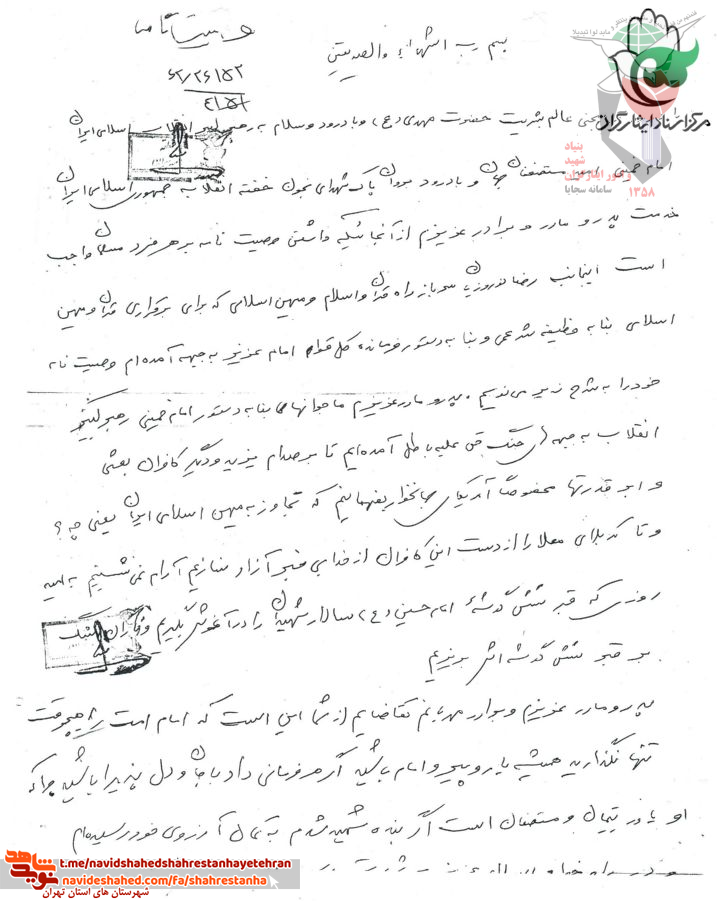 وصیت نامه
بسم رب الشهداء والصدیقین
مرکز اسناد ایثارگران
بنیاد
شهید
و امور ایثارگران
۱۳۵۸
سامانه سجایا
عالم بشریت حضرت مهدی (عج) و با درود و سلام به رهبر کبیر انقلاب اسلامی ایران
امام خمینی امید مستضعفان جهان و با درود بروان پاک شهدای بخون خفته انقلاب جمهوری اسلامی ایران
خدمت پدر و مادر و برادر عزیزم از آنجائیکه داشتن وصیت نامه بر هر فرد مسلمان واجب
است اینجانب رضا نوروزیان سرباز راه قرآن و اسلام و میهن اسلامی که برای برقراری قرآن و میهن
اسلامی بنا به وظیفه شرعی و بنا به دستور فرمانده کل قوا امام عزیز به جبهه آمده ام وصیت نامه
خود را به شرح زیر می نویسم . پدر و مادر عزیزم ما جوانها بنا به دستور امام خمینی رهبر کبیر
انقلاب به جبهه جنگ حق علیه باطل آمده ایم تا بر صدام یزید و دیگر کافران بعثی
و ابر قدرتها مخصوصاً آمریکای جهانخوار بفهمانیم که تجاوز به میهن اسلامی ایران یعنی چه ؟
و تا کربلای معلا را از دست این کافران از خدا بی خبر آزاد نسازیم آرام نمی نشینیم به امید
روزی که قبر شش گوشه امام حسین (ع) سالار شهیدان را در آغوش بگیریم و
بر قبر شش گوشه اش بریزیم
پدر و مادر عزیزم و برادر مهربانم تقاضایم از شما این است که امام امت را هیچوقت
تنها نگذارید همیشه یار و پیرو امام باشید اگر هر فرمانی داد با جان و دل پذیرا باشید چرا که
او یاور یتیمان و مستضعفان است اگر بنده شهید شدم به تمام آرزوی خود رسیده ام
نوید شاهد
t.me/navidshahedshahrestanhayetehran
navideshahed.com/fa/shahrestanha
شهرستان های استان تهران